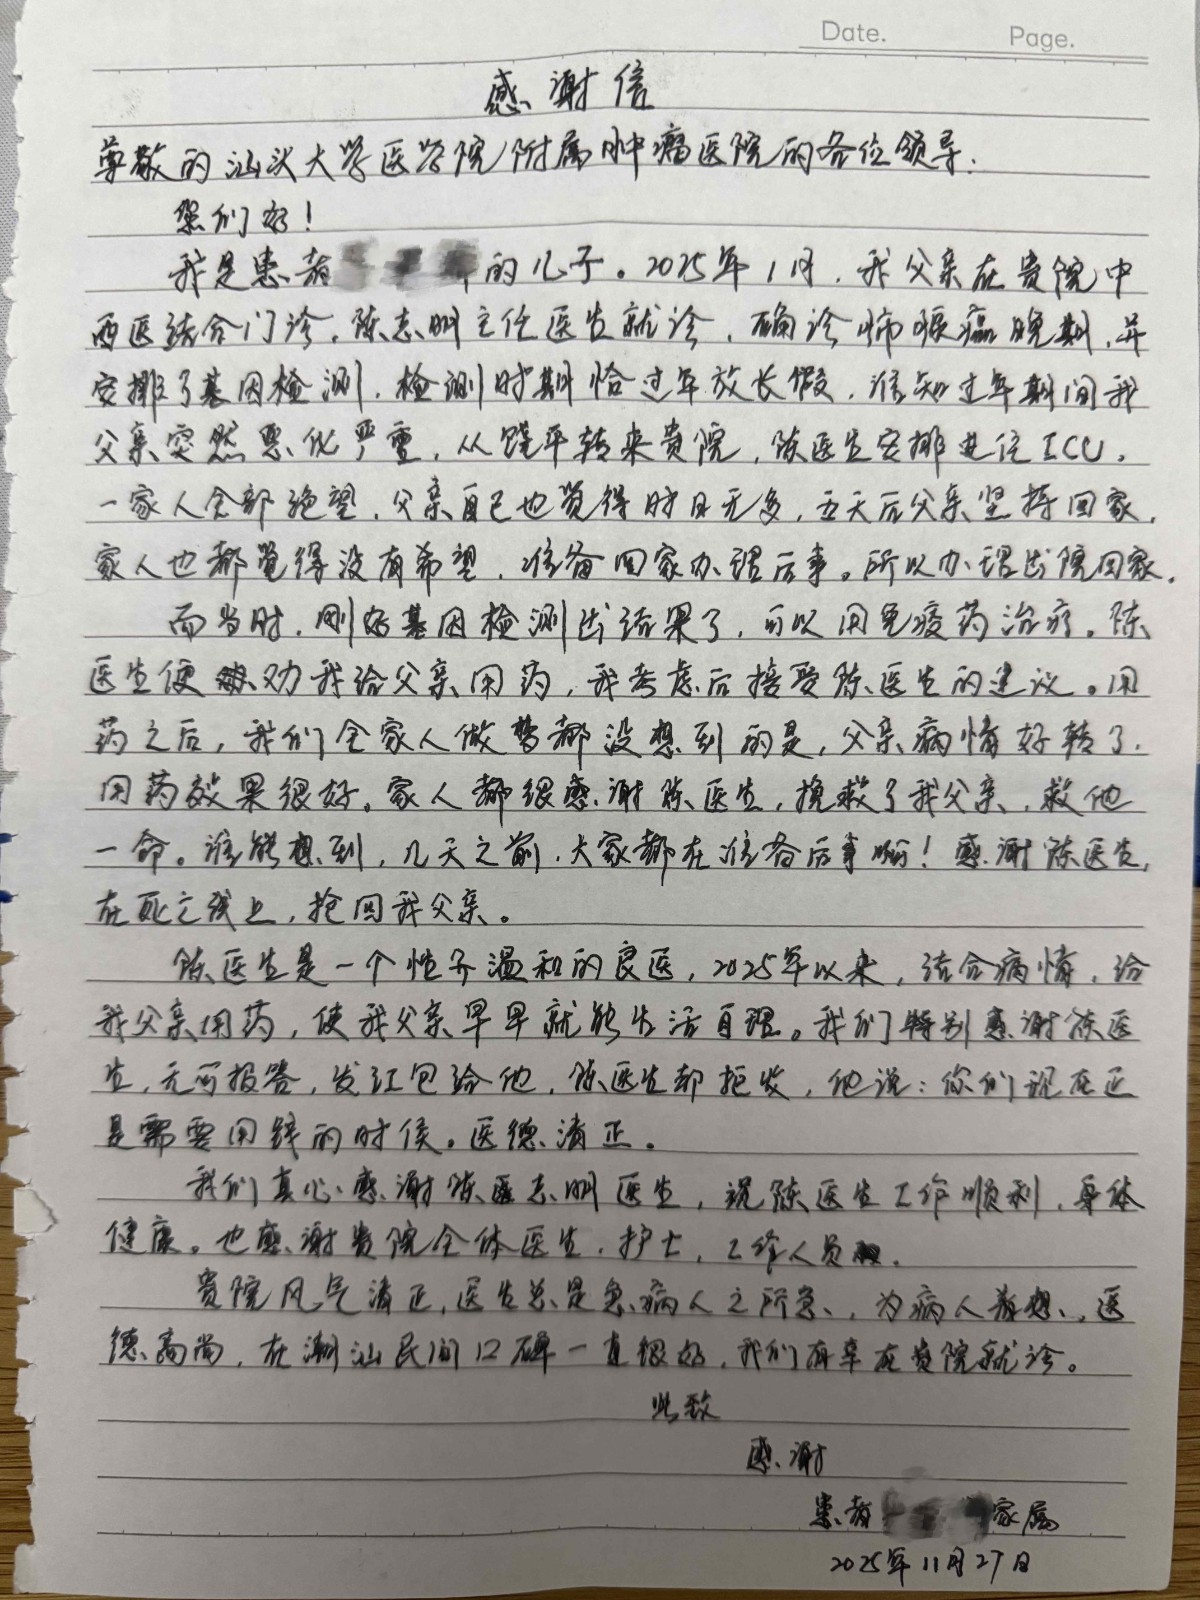 Date. Page.
感谢信
尊敬的汕头大学医学院附属肿瘤医院的各位领导:
您们好!
我是患者 的儿子。2025年1月,我父亲在贵院中
西医结合门诊,陈志明主任医生就诊,确诊肺腺癌晚期,并
安排了基因检测,检测时期恰过年放长假,谁知过年期间我
父亲突然恶化严重,从饶平转来贵院,陈医生安排进住ICU,
一家人全部绝望,父亲自己也觉得时日无多,五天后父亲坚持回家,
家人也都觉得没有希望,准备回家办理后事。所以办理出院回家,
而当时,刚好基因检测出结果了,可以用免疫药治疗。陈
医生便劝我给父亲用药,我考虑后接受陈医生的建议。用
药之后,我们全家人做梦都没想到的是,父亲病情好转了,
用药效果很好。家人都很感谢陈医生,挽救了我父亲,救他
一命。谁能想到,几天之前,大家都在准备后事啊!感谢陈医生,
在死亡线上,抢回我父亲。
陈医生是一个性子温和的良医,2025年以来,结合病情,给
我父亲用药,使我父亲早早就能生活自理。我们特别感谢陈医
生,无可报答,发红包给他,陈医生却拒收,他说:你们现在正
是需要用钱的时候。医德清正。
我们真心感谢陈志明医生,祝陈医生工作顺利,身体
健康。也感谢贵院全体医生,护士,工作人员。
贵院风气清正,医生总是急病人之所急,为病人着想,医
德高尚,在潮汕民间口碑一直很好,我们有幸在贵院就诊。
此致
感谢
患者 家属
2025年11月27日